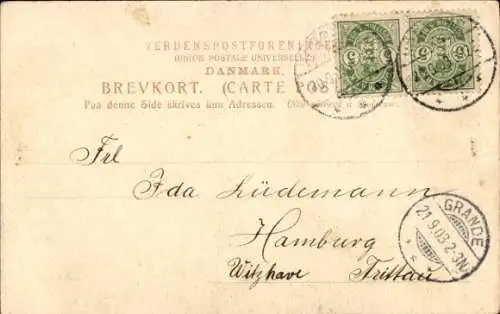 VERDENSPOSTFORENINGEN
(UNION POSTALE UNIVERSELLE)
DANMARK.
BREVKORT. (CARTE POS
Paa denne Side skrives kun Adressen.
Frl
Ida Lüdemann
Hamburg
Witzhave Trittau
GRANDE
21.9.03.2-3N.
5
5